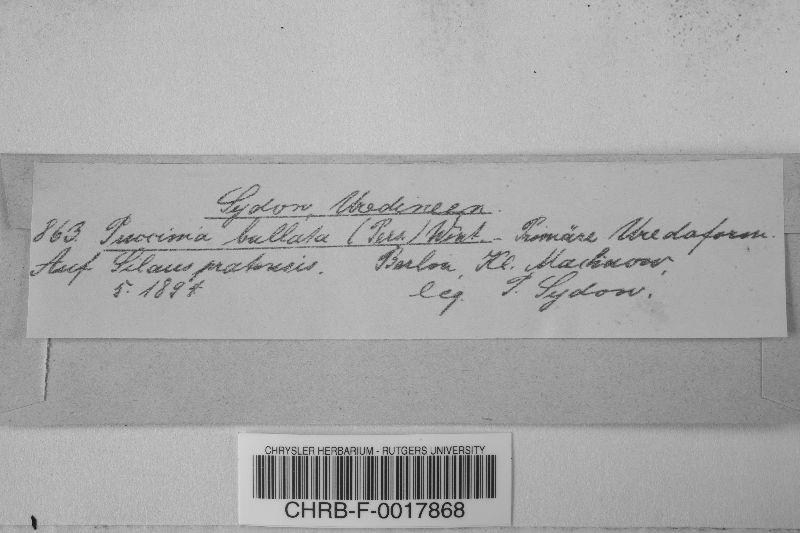 Sydow, Uredineen.
863. Puccinia bullata (Pers.) Wint. - Primäre Uredoform.
Auf Silaus pratensis. Berlin, Kl. Machnow,
5. 1894 leg. P. Sydow.
CHRYSLER HERBARIUM - RUTGERS UNIVERSITY
CHRB-F-0017868